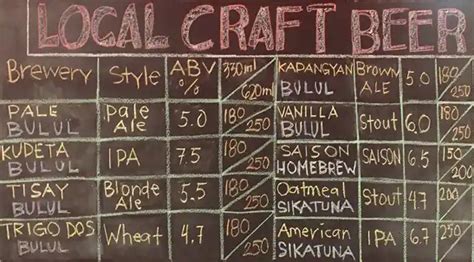 LOCAL CRAFT BEER
Brewery Style ABV % 330ml/620ml
PALE BULUL Pale Ale 5.0 180/250
KUDETA BULUL IPA 7.5 180/250
TISAY BULUL Blonde Ale 5.5 180/250
TRIGO DOS BULUL Wheat 4.7 180/250
KADANGYAN BULUL Brown ALE 5.0 180/250
VANILLA BULUL Stout 6.0 180/250
SAISON HOMEBREW SAISON 6.5 150/200
Oatmeal SIKATUNA Stout 4.7 200
American SIKATUNA IPA 6.7 250